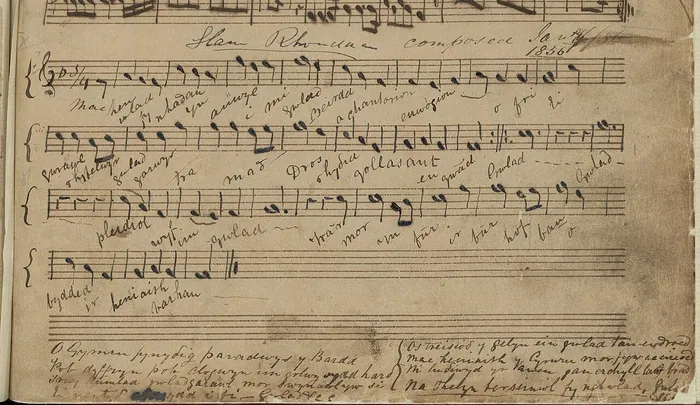 Glan Rhondda composed Jany 1856
Mae hen wlad fy nhadau yn anwyl i mi gwlad Beirdd a chantorion enwogion o fri ei
gwrawl ryfelwyr gwlad garwyr tra mad Dros rhydid gollasant eu gwaed Gwlad Gwlad
pleidiol wyf i'm gwlad tra'r mor yn fur i'r bur hof bau o
bydded i'r heniaith barhau
O Gymru fynyddig paradwys y Bardd
Pob dyffryn pob clogwyn i'm golwg sydd hardd
Trwy deimlad gwladgarawl mor swynawl yw si
Ei nentydd afonydd i fi Gwlad &c
Os treisiodd y gelyn ein gwlad tan ei droed
Mae heniaith y Cymru mor fyw ac erioed
Ni luddiwyd yr awen gan erchyll law brad
Na thelyn berseiniol fy ngwlad Gwlad